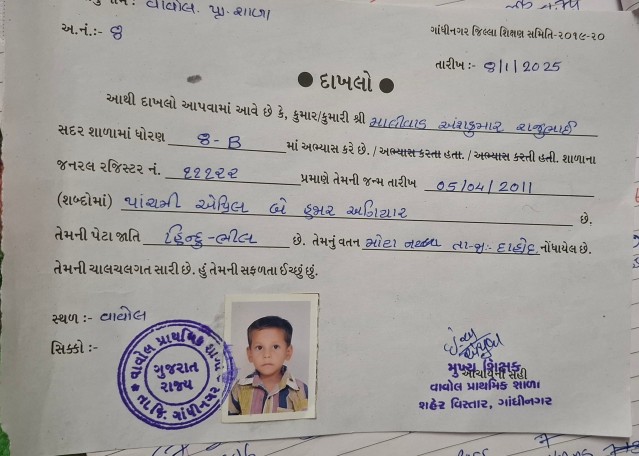 વાવોલ. પ્રા. શાળા
અ.નં.:- 8
ગાંધીનગર જિલ્લા શિક્ષણ સમિતિ-૨૦૧૯-૨૦
તારીખ :- 8/1/2025
● દાખલો ●
આથી દાખલો આપવામાં આવે છે કે, કુમાર/કુમારી શ્રી માલીવાડ અંશકુમાર રાજુભાઈ
સદર શાળામાં ધોરણ 8-B માં અભ્યાસ કરે છે. / અભ્યાસ કરતા હતા. / અભ્યાસ કરતી હતી. શાળાના
જનરલ રજિસ્ટર નં. ૧૧૧૨૨ પ્રમાણે તેમની જન્મ તારીખ 05/04/2011
(શબ્દોમાં) પાંચમી એપ્રિલ બે હજાર અગિયાર છે.
તેમની પેટા જાતિ હિન્દુ-ભીલ છે. તેમનું વતન મોટા તા-જી:- દાહોદ. નોંધાયેલ છે.
તેમની ચાલચલગત સારી છે. હું તેમની સફળતા ઈચ્છું છું.
સ્થળ :- વાવોલ
સિક્કો :-
વાવોલ પ્રાથમિક શાળા
તા.જિ. ગાંધીનગર
ગુજરાત
રાજ્ય
મુખ્ય શિક્ષક
આચાર્યની સહી
વાવોલ પ્રાથમિક શાળા
શહેર વિસ્તાર, ગાંધીનગર